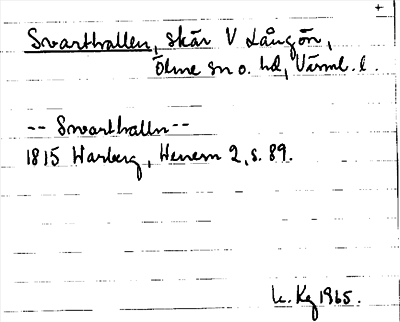 +
Svarthallen, skär V Långön,
Ölme sn o. hd, Värml. l.
-- Svarthalln --
1815 Warberg, Wenern 2, s. 89.
K. Kg 1965.